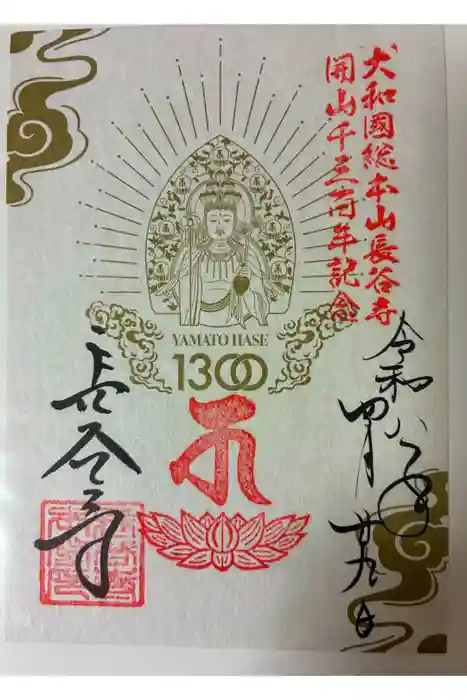 大和國総本山長谷寺
開山千三百年記念
YAMATO HASE
1300
令和八年
四月廿九日
長谷寺